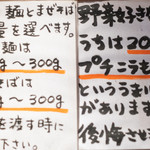 麺とまぜそば
量を選べます。
麺は
g〜300g
そばは
g〜300g
を渡す時に
下さい。
野菜
うちは20
プチニラ
というう
があります
後悔さ